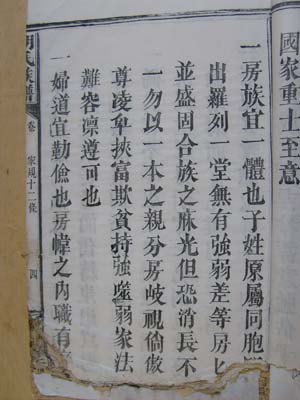 國家重士至意
一房族宜一體也子姓原屬同胞
出羅列一堂無有強弱差等房
並盛固合族之庥光但恐消長不
一勿以一本之親分房歧視倘倣
尊凌卑挾富欺貧持強噬弱家法
難容凜遵可也
一婦道宜勤儉也房幃之內職有
胡氏族譜
卷
家規十二條
四